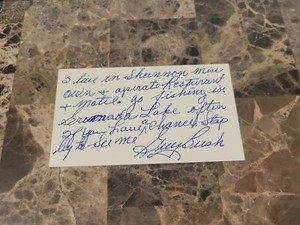 I live in Shannon miss
own + opirate Resturant
+ Motel. go fishing in
Grrenada Lake often
If you have a chance stop
by to see me
Guy Bush